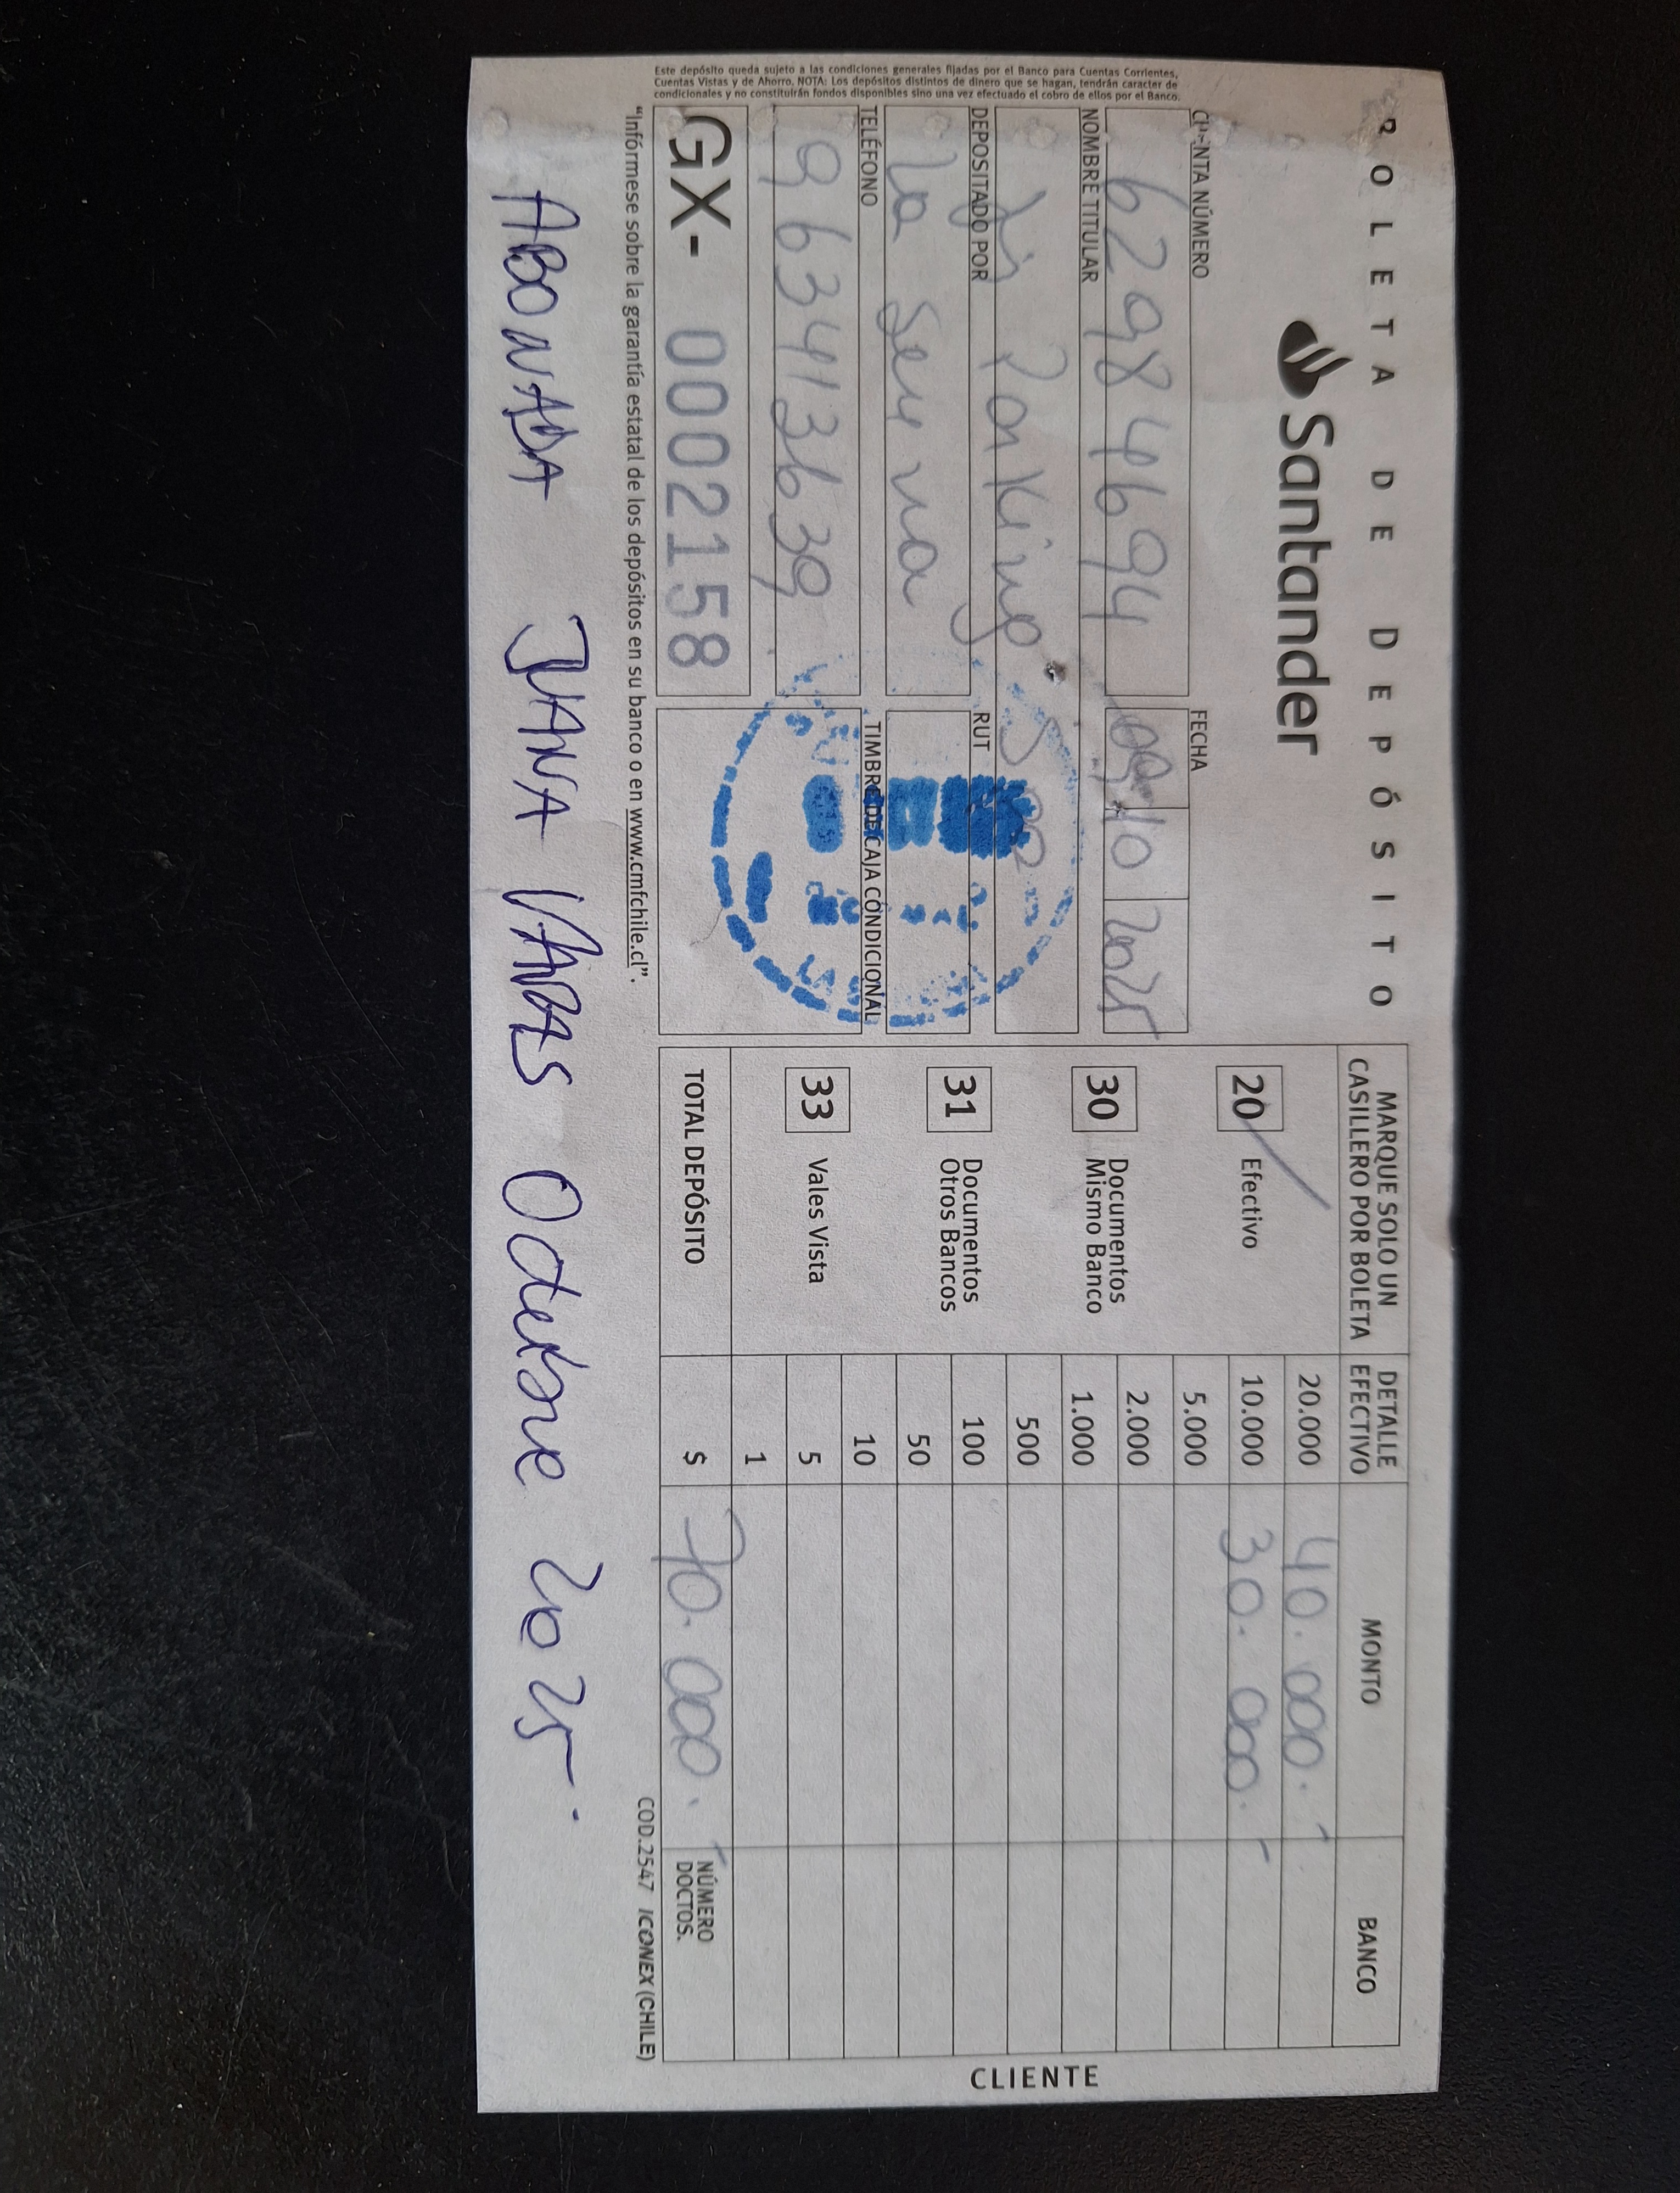 BOLETA DE DEPÓSITO
Santander
CUENTA NÚMERO
62984694
FECHA
09 10 2025
NOMBRE TITULAR
Parking
DEPOSITADO POR
La Serena
RUT
TELÉFONO
963413639
TIMBRE DE CAJA CONDICIONAL
GX- 0002158
Este depósito queda sujeto a las condiciones generales fijadas por el Banco para Cuentas Corrientes,
Cuentas Vistas y de Ahorro. NOTA: Los depósitos distintos de dinero que se hagan, tendrán caracter de
condicionales y no constituirán fondos disponibles sino una vez efectuado el cobro de ellos por el Banco.
MARQUE SOLO UN
CASILLERO POR BOLETA
DETALLE
EFECTIVO
MONTO
BANCO
20 Efectivo
30 Documentos
Mismo Banco
31 Documentos
Otros Bancos
33 Vales Vista
20.000 40.000.-
10.000 30.000.-
5.000
2.000
1.000
500
100
50
10
5
1
TOTAL DEPÓSITO $ 70.000.-
NÚMERO
DOCTOS.
CLIENTE
"Infórmese sobre la garantía estatal de los depósitos en su banco o en www.cmfchile.cl".
COD.2547 ICONEX (CHILE)
ABONADA JUANA VARAS Octubre 2025.